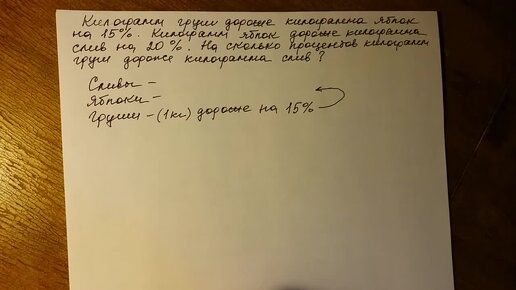 Килограмм груш дороже килограмма яблок
на 15%. Килограмм яблок дороже килограмма
слив на 20%. На сколько процентов килограмм
груш дороже килограмма слив?
Сливы -
Яблоки -
Груши - (1кг) дороже на 15%